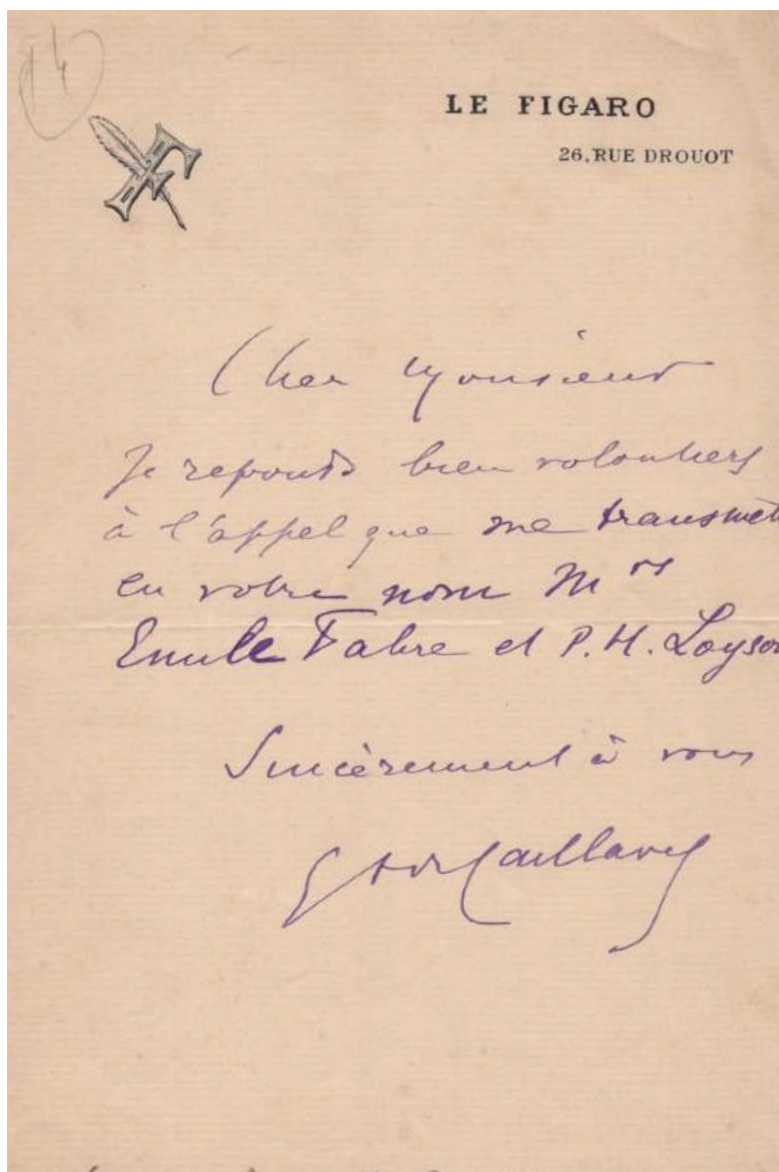 14
LE FIGARO
26, RUE DROUOT
Cher Monsieur
Je réponds bien volontiers
à l'appel que me transmet
en votre nom Mrs
Emile Fabre et P. H. Loyson
Sincèrement à vous
G A de Caillavet